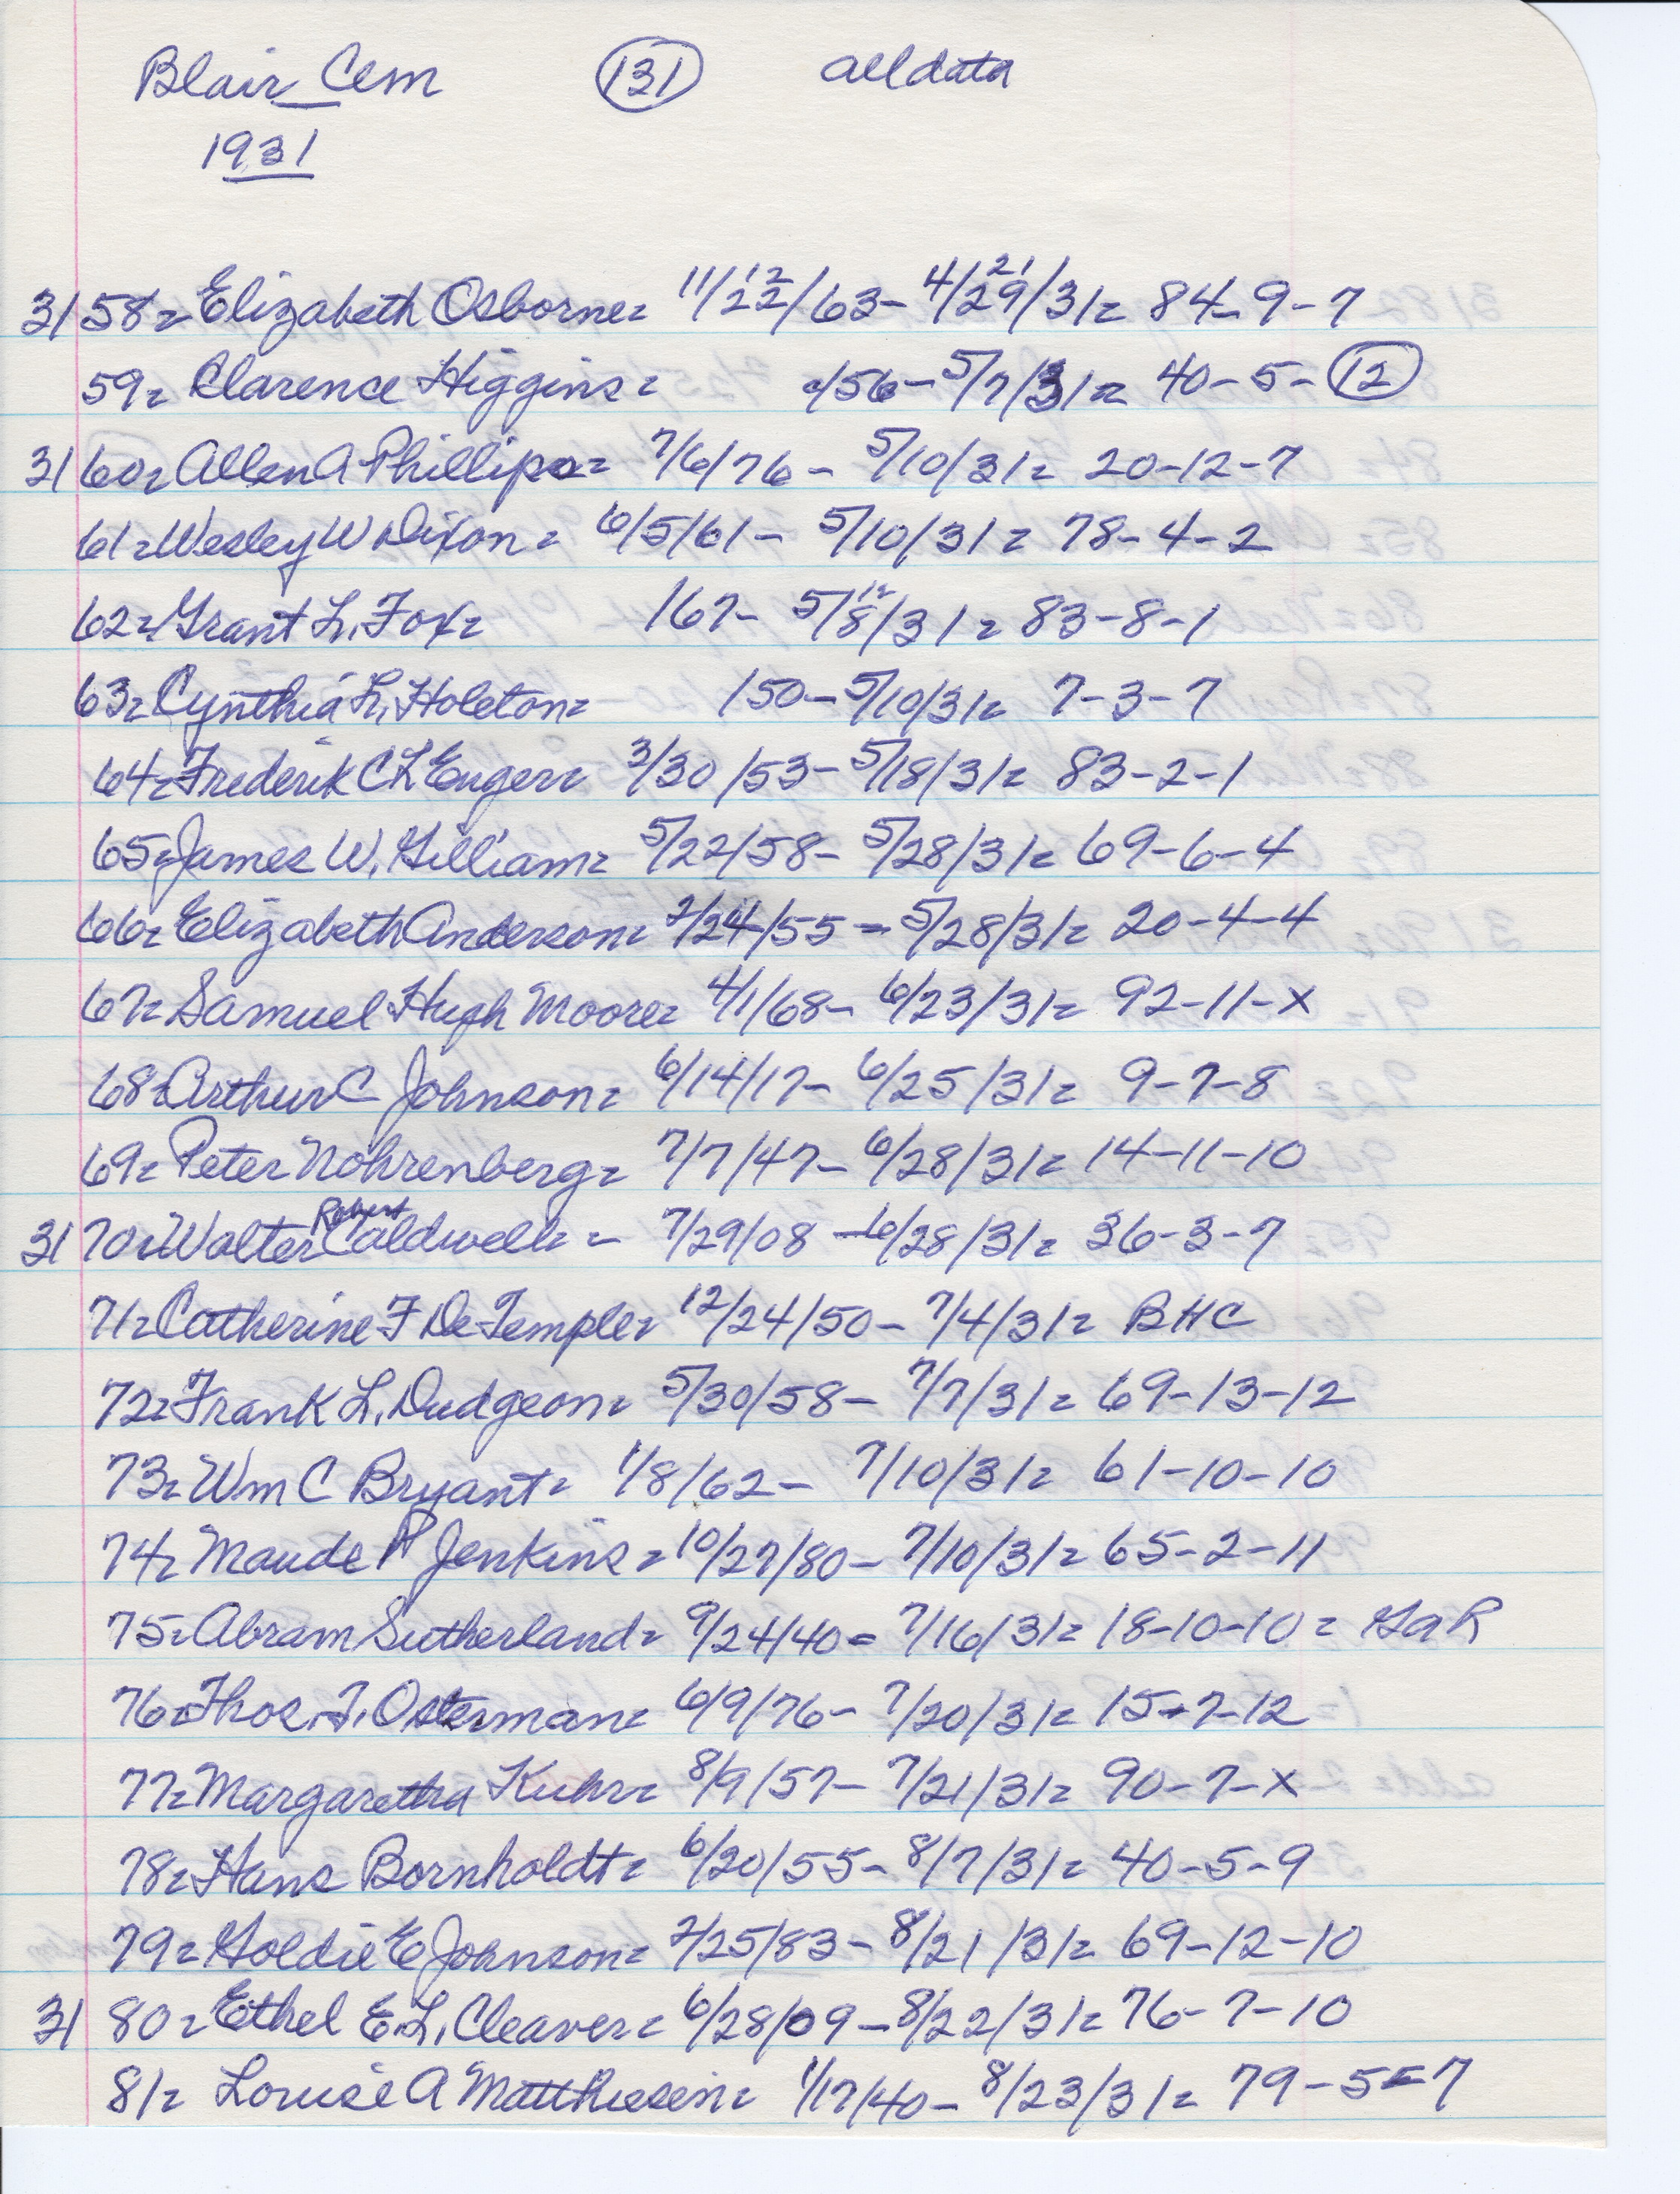 Blair Cem (131) all data
1931
3158= Elizabeth Osborne= 11/22/63- 4/29/31= 84-9-7
12 21
59= Clarence Higgins= /56- 5/7/31= 40-5-(12)
3160= Allen A Phillips= 7/6/76- 5/10/31= 20-12-7
61= Wesley W Dixon= 6/5/61- 5/10/31= 78-4-2
62= Grant L. Fox= /67- 5/8/31= 83-8-1
12
63= Cynthia L. Holeton= /50- 5/10/31= 7-3-7
64= Frederik C L Enger= 3/30/53- 5/18/31= 83-2-1
65= James W. Gilliam= 5/22/58- 5/28/31= 69-6-4
66= Elizabeth Anderson= 2/24/55- 5/28/31= 20-4-4
67= Samuel Hugh Moore= 4/1/68- 6/23/31= 92-11-X
68= Arthur C Johnson= 6/14/17- 6/25/31= 9-7-8
69= Peter Nohrenberg= 7/7/47- 6/28/31= 14-11-10
3170= Walter Robert Caldwell= - 7/29/08-6/28/31= 36-3-7
71= Catherine F DeTemple= 12/24/50- 7/4/31= BHC
72= Frank L. Dudgeon= 5/30/58- 7/7/31= 69-13-12
73= Wm C Bryant= 1/8/62- 7/10/31= 61-10-10
74= Maude P Jenkins= 10/27/80- 7/10/31= 65-2-11
75= Abram Sutherland= 9/24/40= 7/16/31= 18-10-10= GaR
76= Thos. T. Osterman= 6/9/76- 7/20/31= 15-7-12
77= Margaretha Kuhr= 8/9/57- 7/21/31= 90-7-X
78= Hans Bornholdt= 6/20/55- 8/7/31= 40-5-9
79= Goldie E Johnson= 2/25/83- 8/21/31= 69-12-10
3180= Ethel E.L. Cleaver= 6/28/09-8/22/31= 76-7-10
81= Louise A Matthiesen= 1/17/40- 8/23/31= 79-5-7